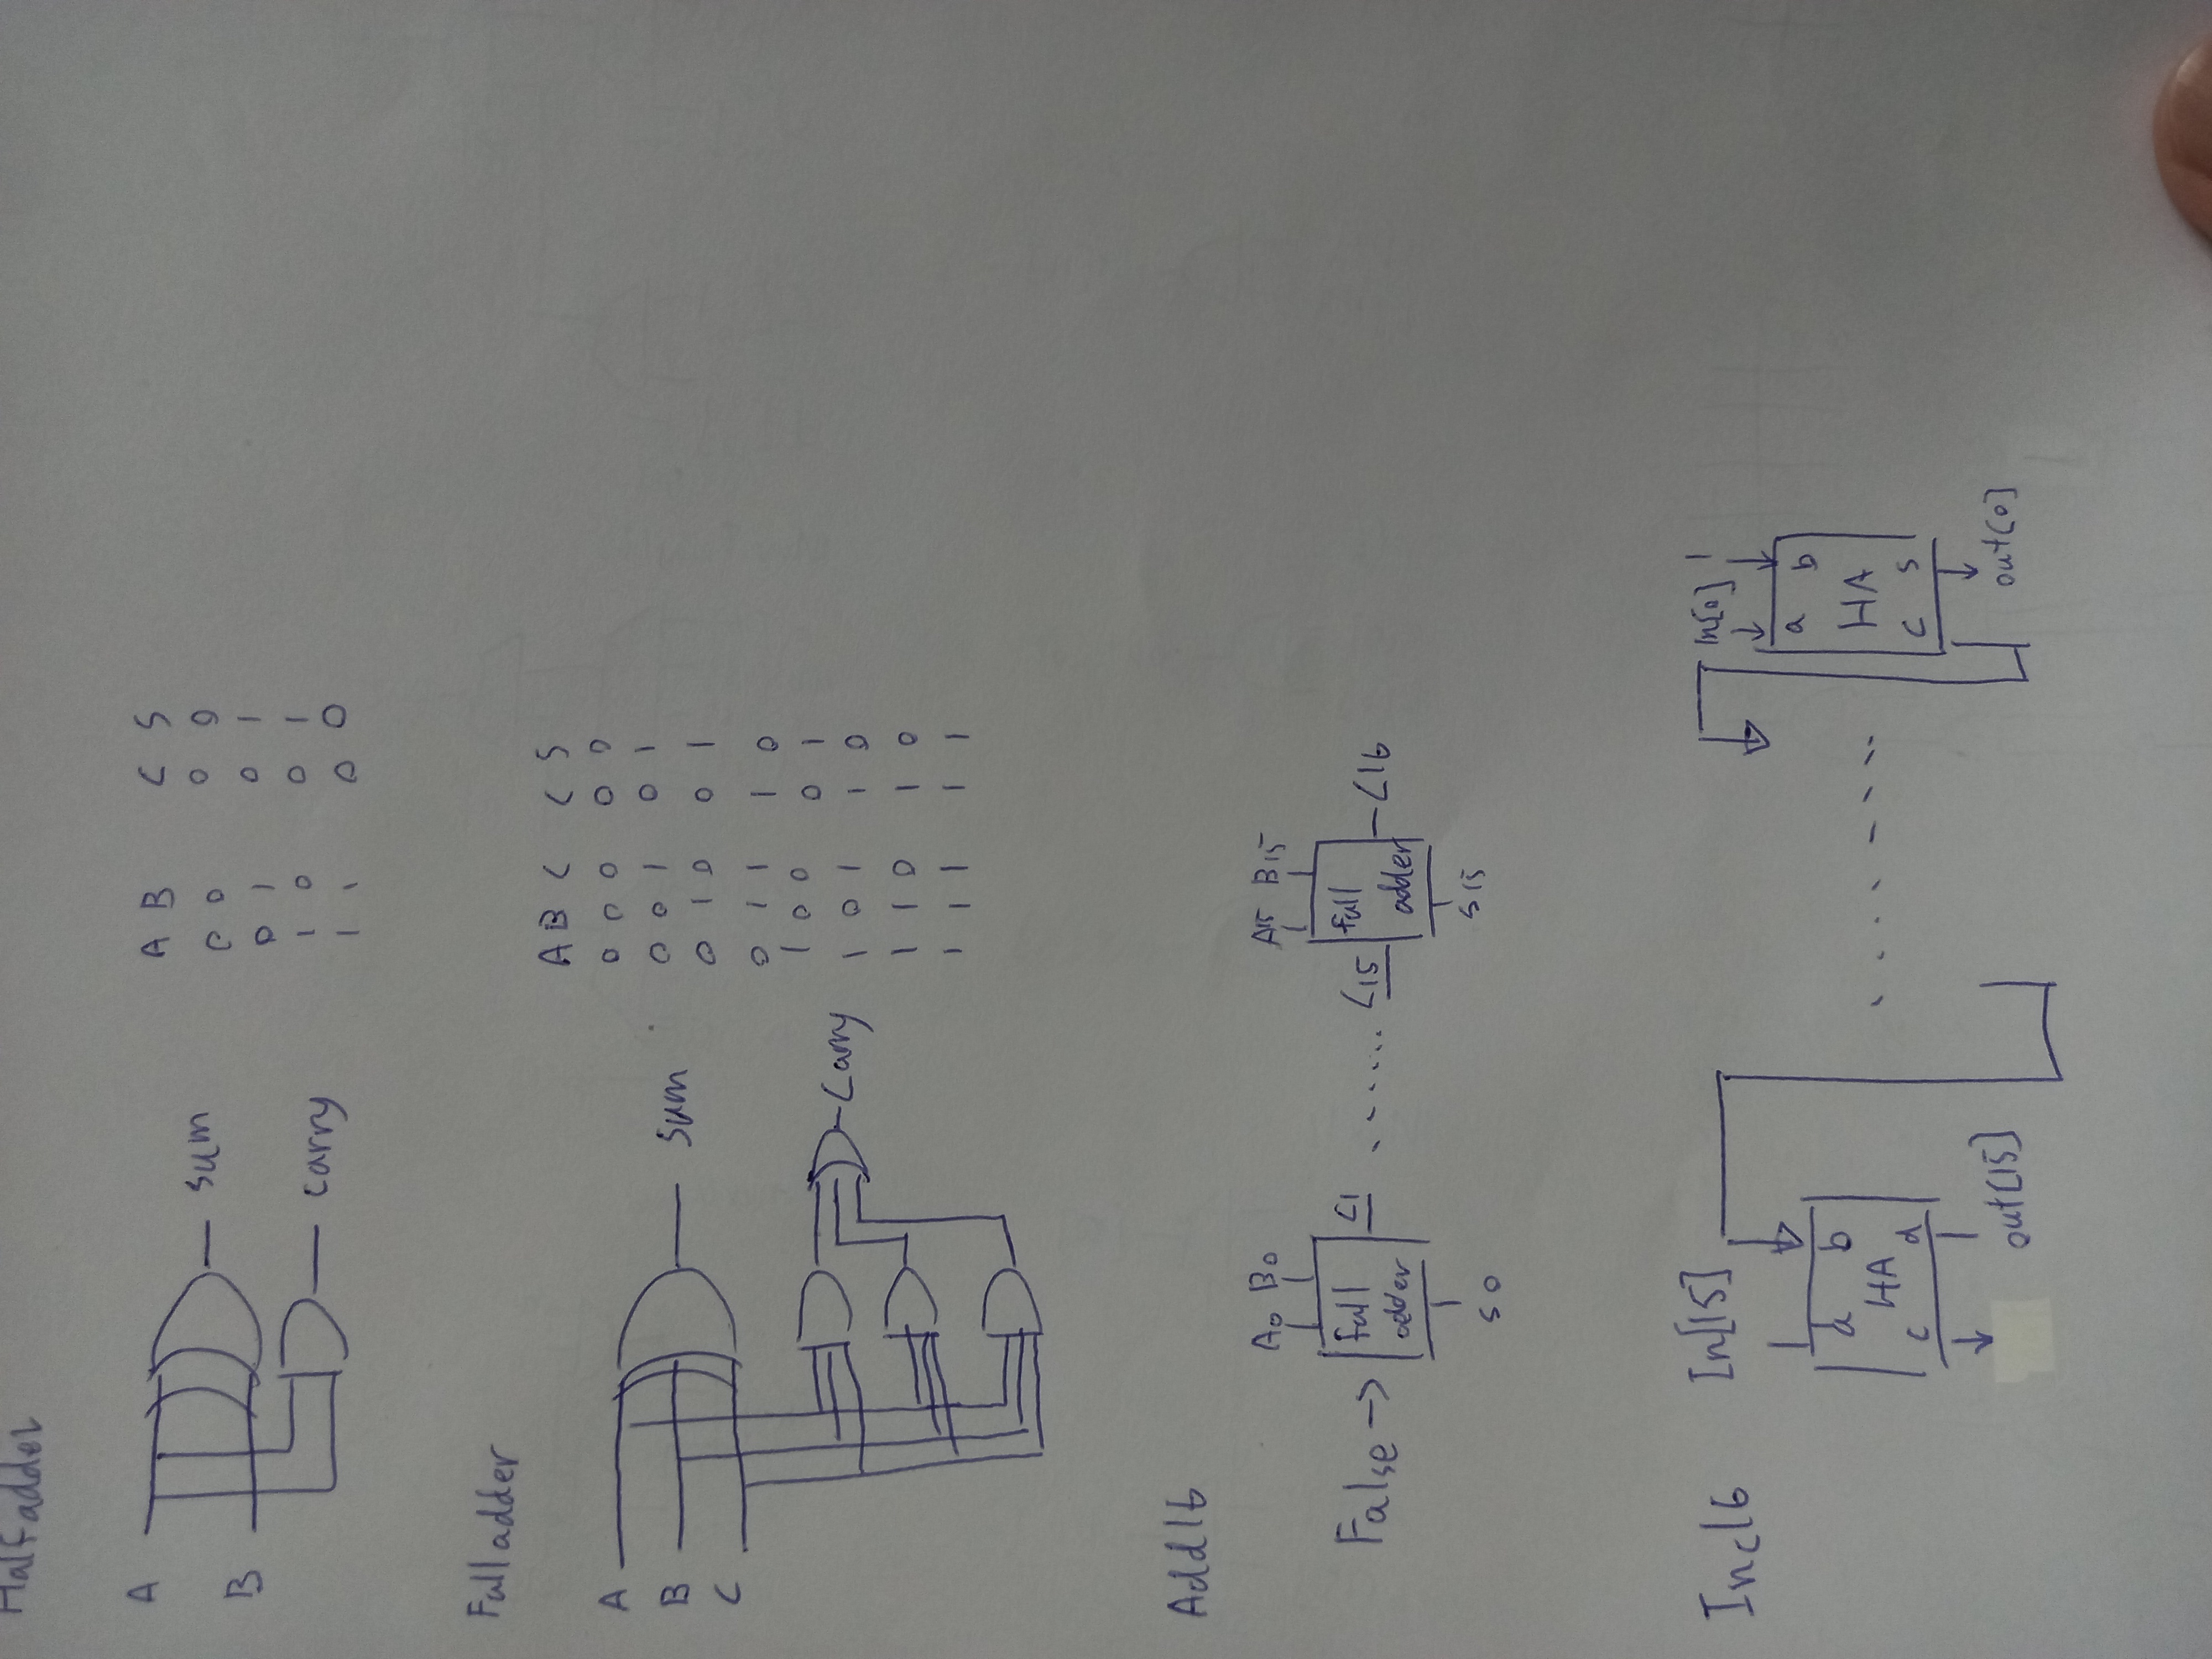 Halfadder
A
B
sum
carry
A B C S
0 0 0 0
0 1 0 1
1 0 0 1
1 1 0 0
Full adder
A
B
C
sum
carry
A B C C S
0 0 0 0 0
0 0 1 0 1
0 1 0 0 1
0 1 1 1 0
1 0 0 0 1
1 0 1 1 0
1 1 0 1 0
1 1 1 1 1
Add16
A0 B0 A15 B15
False full adder C1 ...... C15 full adder C16
S0 S15
Inc16
In[15] In[0] 1
a b a b
HA ........ HA
c d c s
out[15] out[0]